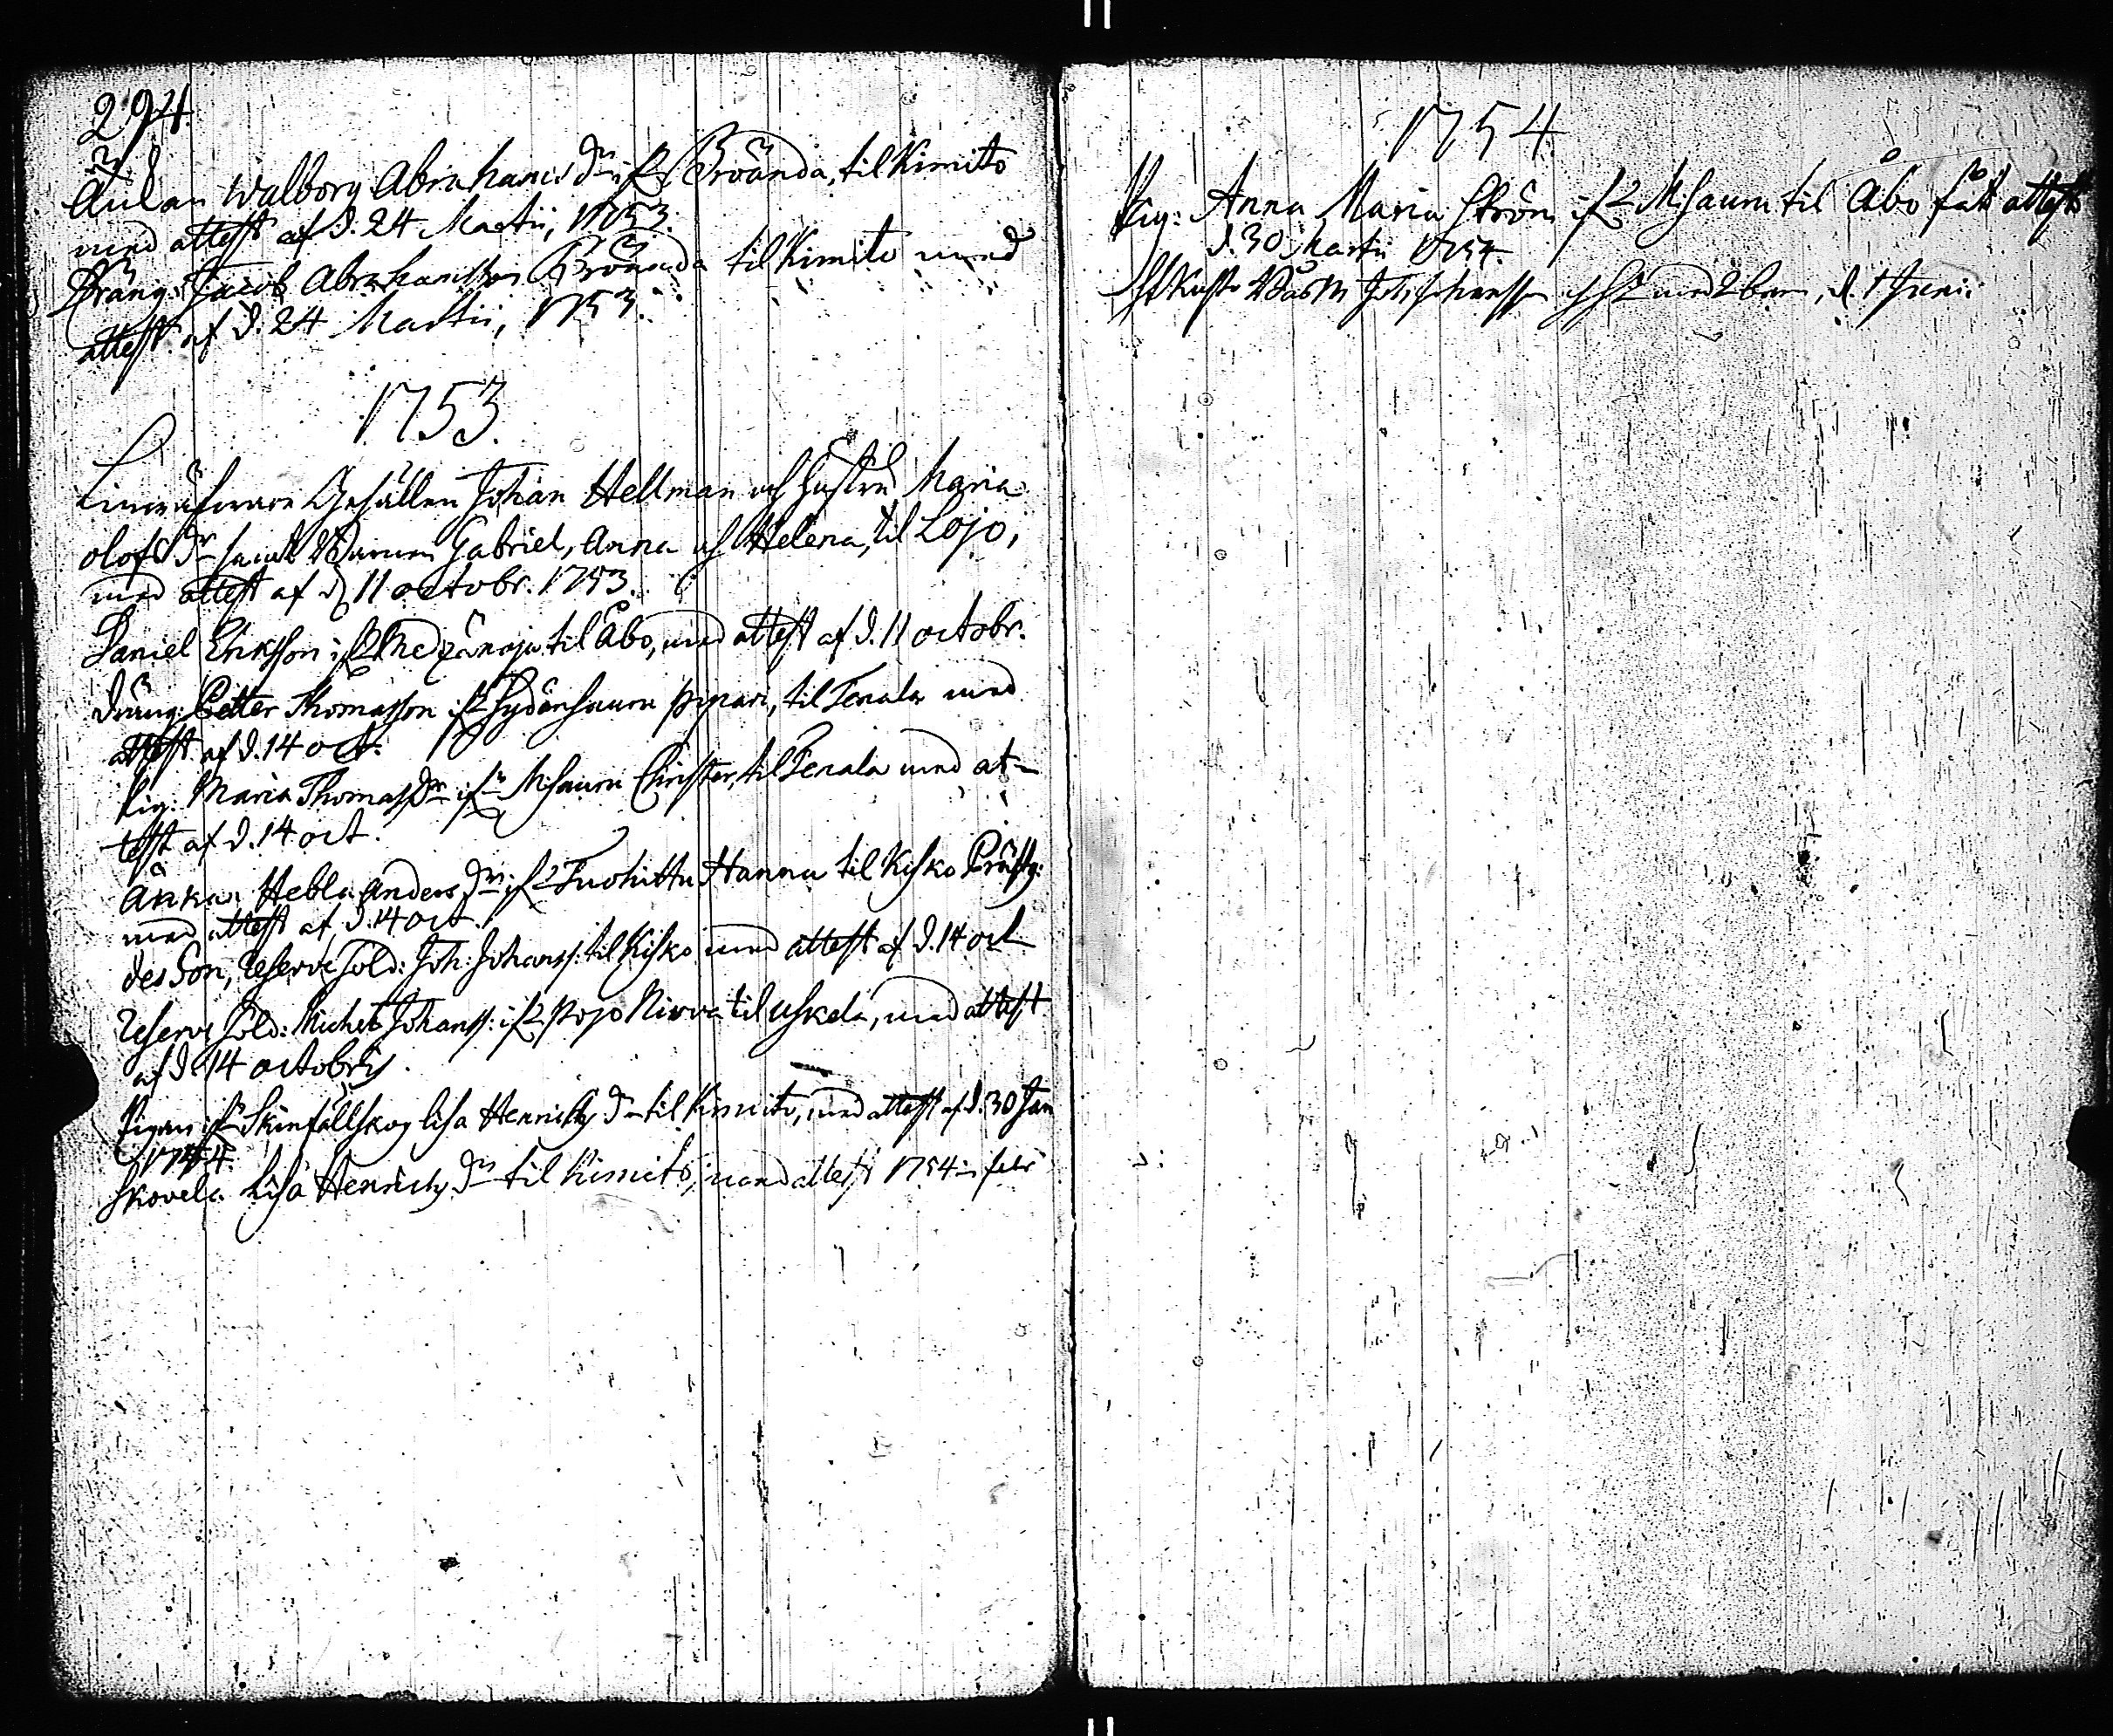 294.
Änkan Walborg Abrahams Dr ifr Bröända, til Kimito
med attest af d. 24 Martii, 1753.
Dräng: Jacob Abrahamsson Bröanda til Kimito med
attest af d. 24 Martii, 1753.
1753.
Gesällen Johan Hellman och hustru Maria
olofs Dr samt Barnen Gabriel, Anna och Helena, til Lojo,
med attest af d 11 octobr. 1753.
Daniel Eriksson ifr til Åbo, med attest af d. 11 octobr.
Dräng: Petter Thomasson ifr til Tenala med
attest af d. 14 oct.
Pig: Maria Thomas Dr ifr til Tenala med at-
test af d. 14 oct.
Änkan Hebla Anders Dr ifr Tuohittu Hannu til Kisko Prästg:
med attest af d. 14 oct.
des Son, Reserve Sold: Joh: Johanss: til Kisko med attest af d. 14 oct
Reserve Sold: Michel Johanss: ifr Pojo til Uskela, med attest
af d. 14 octobris.
Pigan ifr Lisa Henrichs Dr til Kimito, med attest af d. 30 Jan
1754.
Lisa Henrichs Dr til Kimito, med attest 1754 in febr
1754
Pig: Anna Maria Ström ifr til Åbo fått attest
d. 30 Martii 1754.
med 2 barn, d. 1 Junii